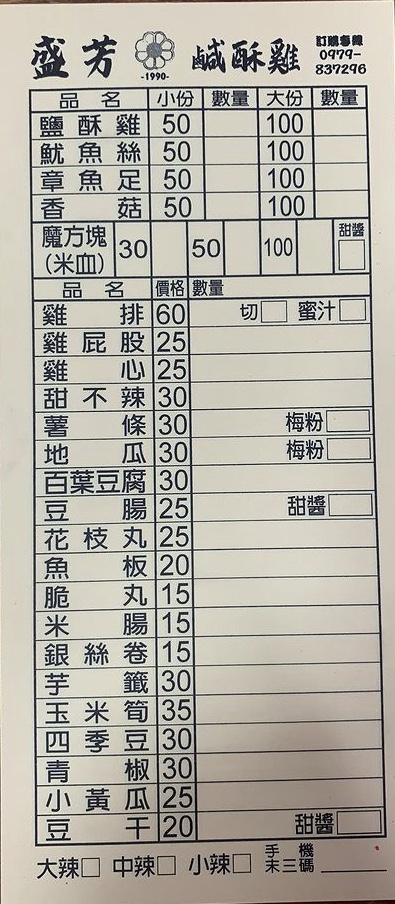 盛芳 -1990- 鹹酥雞 訂購專線
0979-
837296
品名 小份 數量 大份 數量
鹽酥雞 50 100
魷魚絲 50 100
章魚足 50 100
香菇 50 100
魔方塊 30 50 100 甜醬
(米血)
品名 價格 數量
雞排 60 切□ 蜜汁□
雞屁股 25
雞心 25
甜不辣 30
薯條 30 梅粉□
地瓜 30 梅粉□
百葉豆腐 30
豆腸 25 甜醬□
花枝丸 25
魚板 20
脆丸 15
米腸 15
銀絲卷 15
芋籤 30
玉米筍 35
四季豆 30
青椒 30
小黃瓜 25
豆干 20 甜醬□
大辣□ 中辣□ 小辣□ 手機
末三碼